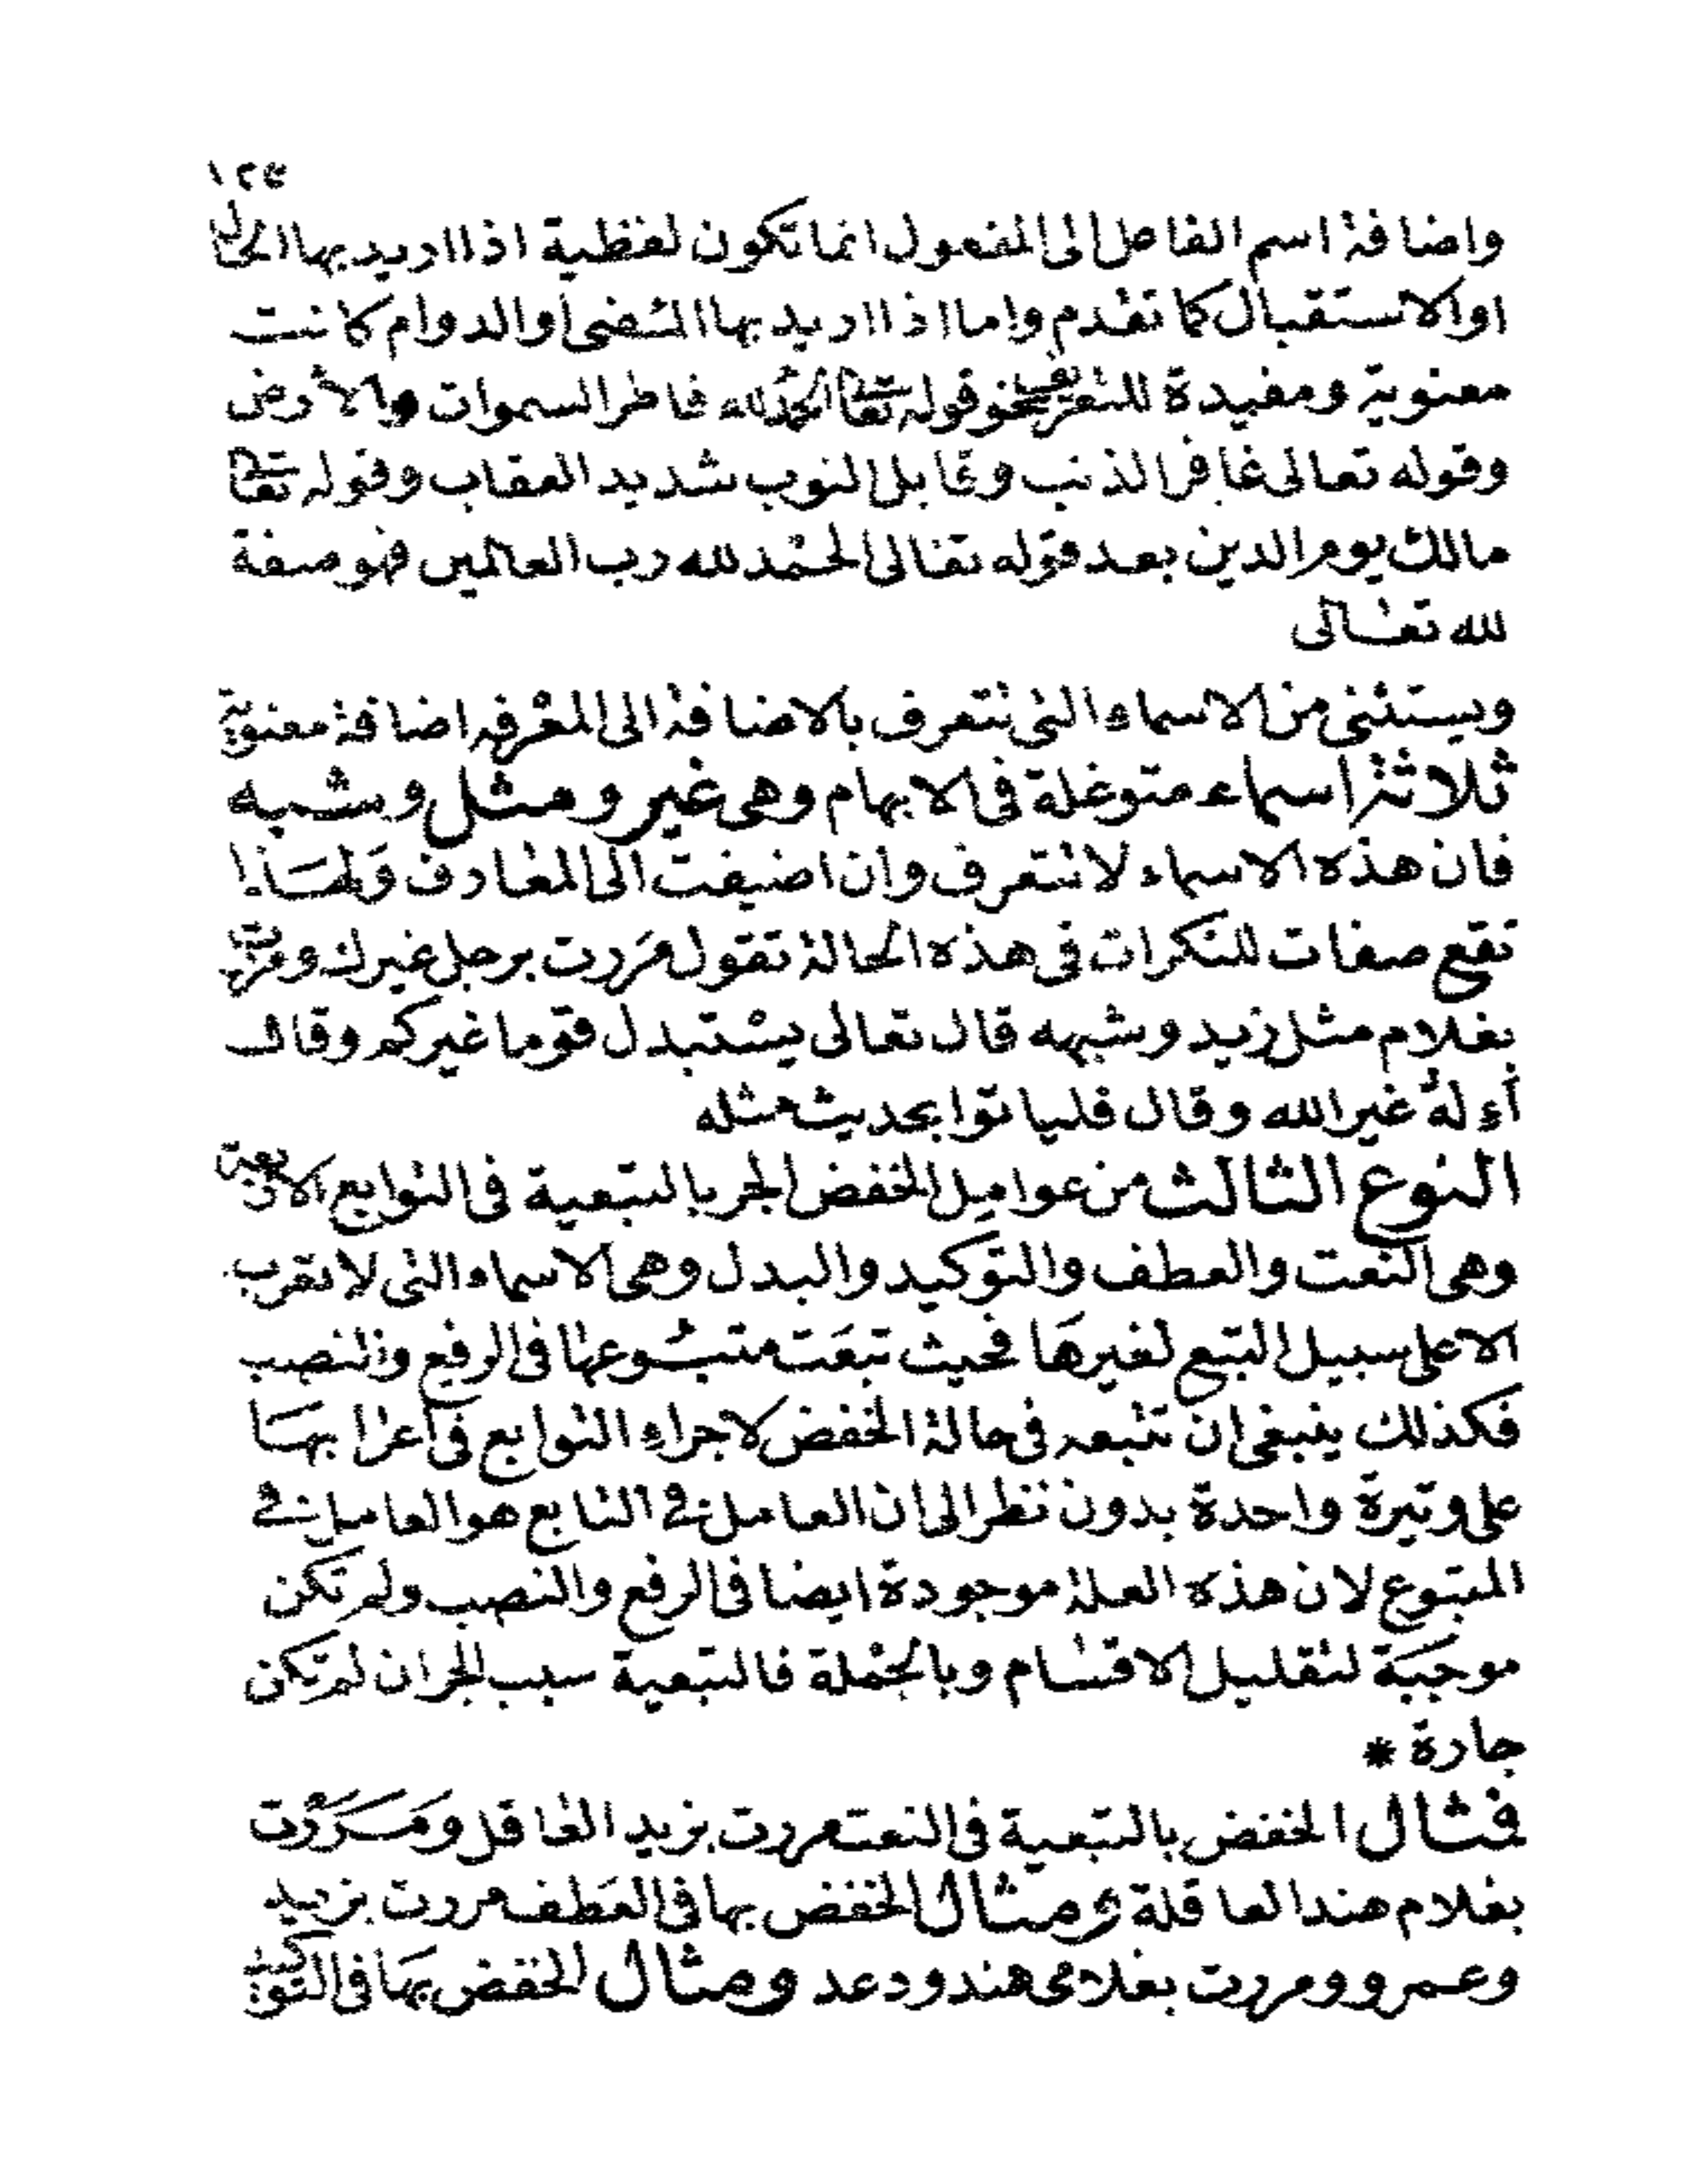 ١٢٥
واضافة اسم الفاعل الى المفعول انما تكون لفظية اذا اريد بها الحال
او الاستقبال كما تقدم واما اذا اريد بها المضى او الدوام كانت
معنوية ومفيدة للتعريف نحو قوله تعالى الحمد لله فاطر السموات والأرض
وقوله تعالى غافر الذنب وقابل التوب شديد العقاب وقوله تعالى
مالك يوم الدين بعد قوله تعالى الحمد لله رب العالمين فهو صفة
لله تعالى
ويستثنى من الاسماء التى تتعرف بالاضافة الى المعرفه اضافة معنوية
ثلاثة اسماء متوغلة فى الابهام وهى غير ومثل وشبه
فان هذه الاسماء لا تتعرف وان اضيفت الى المعارف وَلهَذا
تقع صفات للنكرات فى هذه الحالة تقول مَررت برجل غيرك ومررت
بغلام مثل زيد وشبهه قال تعالى يسْتبدل قوما غيركم وقال
أءلهٌ غير الله وقال فلياتوا بحديث مثله
النوع الثالث من عوامل الخفض الجر بالتبعية فى التوابع الاربعة
وهى النعت والعطف والتوكيد والبدل وهى الاسماء التى لا تعرب
الا على سبيل التبع لغيرهَا فحيث تبعَت متبُوعها فى الرفع والنصب
فكذلك ينبغى ان تتبعه فى حالة الخفض لاجراء التوابع فى اعرابهَا
على وتيرة واحدة بدون نظر الى ان العامل فى التابع هو العامل فى
المتبوع لان هذه العلة موجودة ايضا فى الرفع والنصب ولم تكن
موجبَة لتقليل الاقسام وبالجمْلة فالتبعية سبب للجر ان لم تكن
جارة *
فمثال الخفض بالتبعية فى النعت مررت بزيد العاقل ومَرَرْت
بغلام هند العاقلة ومثال الخفض بها فى العَطف مررت بزيد
وعمرو ومررت بغلامى هند ودعد ومثال الخفض بهَا فى التوكيد